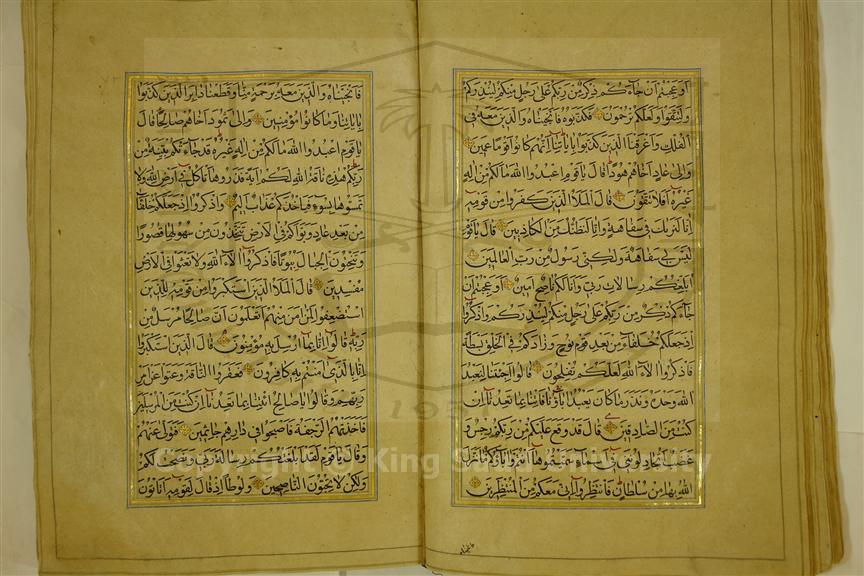 أوعجبتم أن جاءكم ذكر من ربكم على رجل منكم لينذركم
ولتتقوا ولعلكم ترحمون فكذبوه فانجيناه والذين معه في
الفلك واغرقنا الذين كذبوا باياتنا انهم كانوا قوما عمين
والى عاد اخاهم هودا قال يا قوم اعبدوا الله ما لكم من اله
غيره افلا تتقون قال الملأ الذين كفروا من قومه
انا لنريك في سفاهة وانا لنظنك من الكاذبين قال يا قوم
ليس بي سفاهة ولكني رسول من رب العالمين
ابلغكم رسالات ربي وانا لكم ناصح امين أوعجبتم ان
جاءكم ذكر من ربكم على رجل منكم لينذركم واذكروا
اذ جعلكم خلفاء من بعد قوم نوح وزادكم في الخلق بسطة
فاذكروا الاء الله لعلكم تفلحون قالوا اجئتنا لنعبد
الله وحده ونذر ما كان يعبد اباؤنا فاتنا بما تعدنا ان
كنت من الصادقين قال قد وقع عليكم من ربكم رجس و
غضب اتجادلونني في اسماء سميتموها انتم واباؤكم ما نزل
الله بها من سلطان فانتظروا اني معكم من المنتظرين
فانجيناه
فانجيناه والذين معه برحمة منا وقطعنا دابر الذين كذبوا
باياتنا وما كانوا مؤمنين والى ثمود اخاهم صالحا قال
يا قوم اعبدوا الله ما لكم من اله غيره قد جاءتكم بينة من
ربكم هذه ناقة الله لكم اية فذروها تاكل في ارض الله ولا
تمسوها بسوء فياخذكم عذاب اليم واذكروا اذ جعلكم خلفاء
من بعد عاد وبواكم في الارض تتخذون من سهولها قصورا
وتنحتون الجبال بيوتا فاذكروا الاء الله ولا تعثوا في الارض
مفسدين قال الملأ الذين استكبروا من قومه للذين
استضعفوا لمن امن منهم اتعلمون ان صالحا مرسل من
ربه قالوا انا بما ارسل به مؤمنون قال الذين استكبروا
انا بالذي امنتم به كافرون فعقروا الناقة وعتوا عن امر
ربهم وقالوا يا صالح ائتنا بما تعدنا ان كنت من المرسلين
فاخذتهم الرجفة فاصبحوا في دارهم جاثمين فتولى عنهم
وقال يا قوم لقد ابلغتكم رسالة ربي ونصحت لكم
ولكن لا تحبون الناصحين ولوطا اذ قال لقومه اتاتون
Copyright © King Saud University